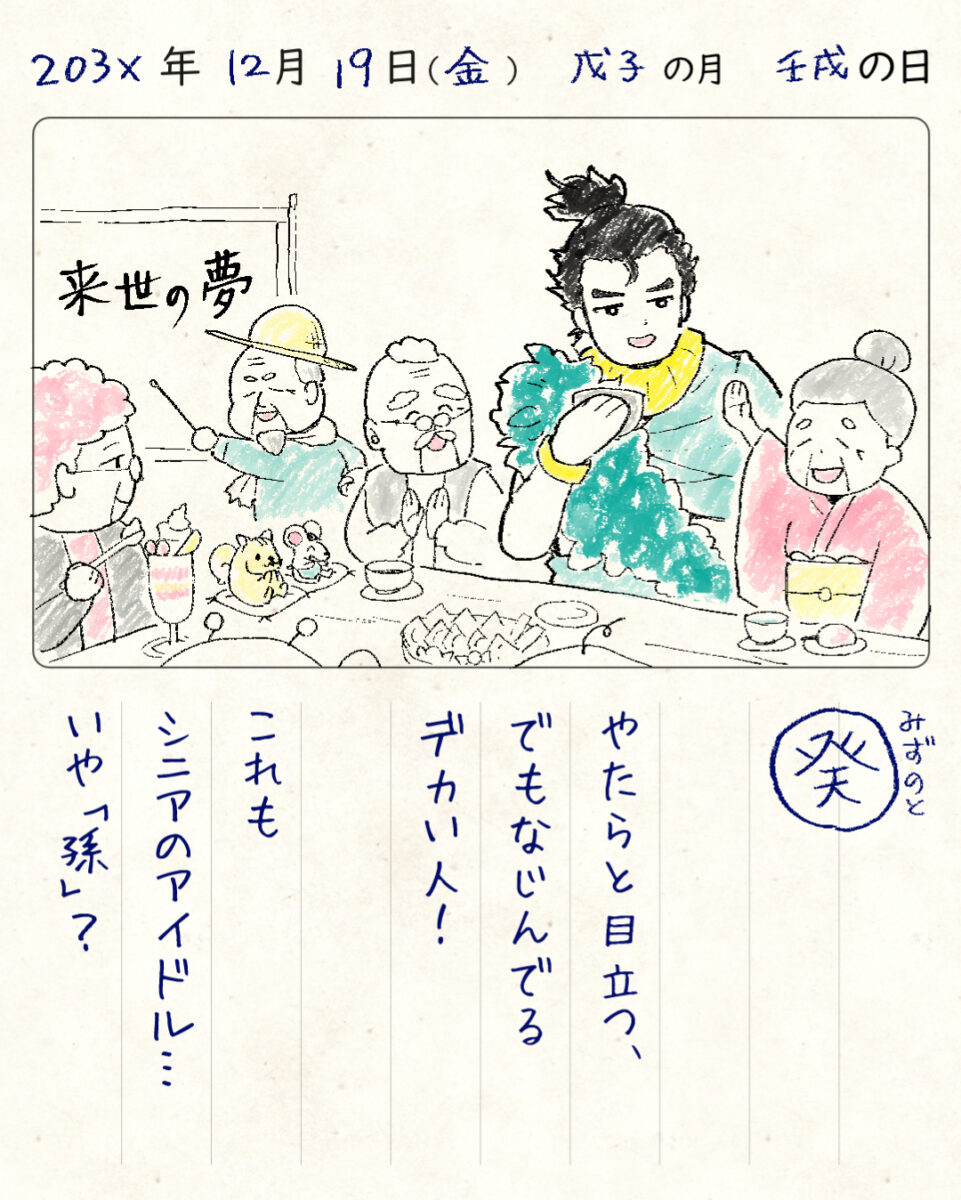 203X年 12月 19日(金) 戊子の月 壬戌の日
来世の夢
みずのと
癸
やたらと目立つ、
でもなじんでる
デカい人!
これも
シニアのアイドル…
いや「孫」?